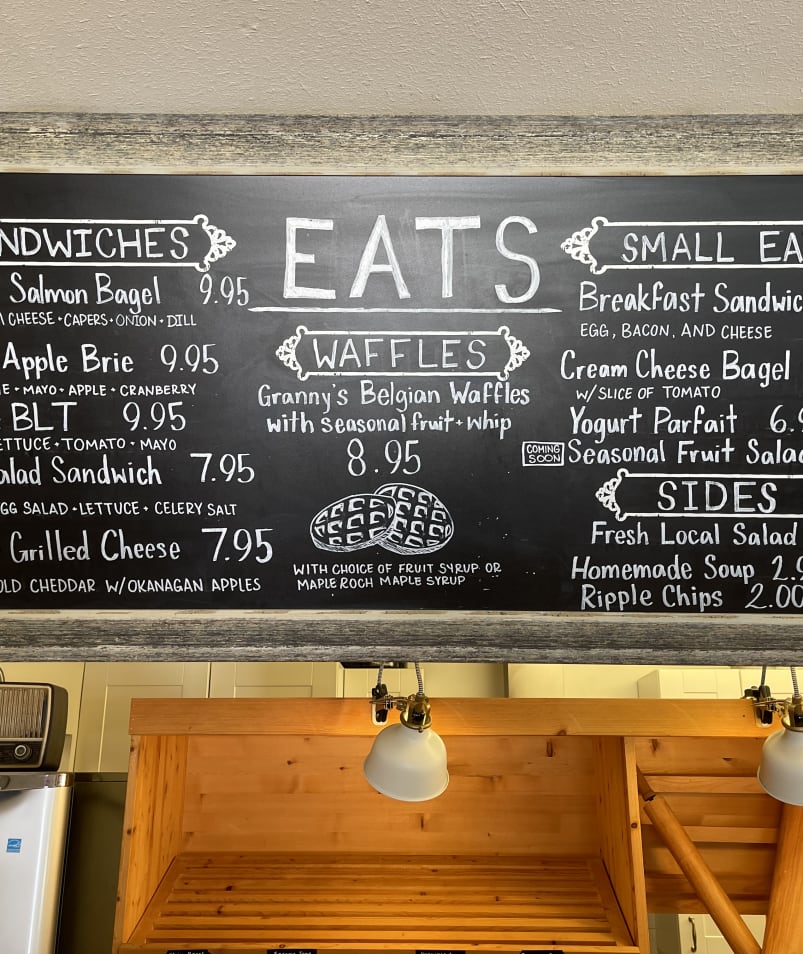 EATS
NDWICHES
Salmon Bagel 9.95
CHEESE • CAPERS • ONION • DILL
Apple Brie 9.95
E • MAYO • APPLE • CRANBERRY
BLT 9.95
ETTUCE • TOMATO • MAYO
alad Sandwich 7.95
GG SALAD • LETTUCE • CELERY SALT
Grilled Cheese 7.95
OLD CHEDDAR W/OKANAGAN APPLES
WAFFLES
Granny's Belgian Waffles
with seasonal fruit + whip
8.95
WITH CHOICE OF FRUIT SYRUP OR
MAPLE ROCH MAPLE SYRUP
SMALL EA
Breakfast Sandwic
EGG, BACON, AND CHEESE
Cream Cheese Bagel
W/SLICE OF TOMATO
Yogurt Parfait 6.9
COMING SOON Seasonal Fruit Salad
SIDES
Fresh Local Salad
Homemade Soup 2.9
Ripple Chips 2.00